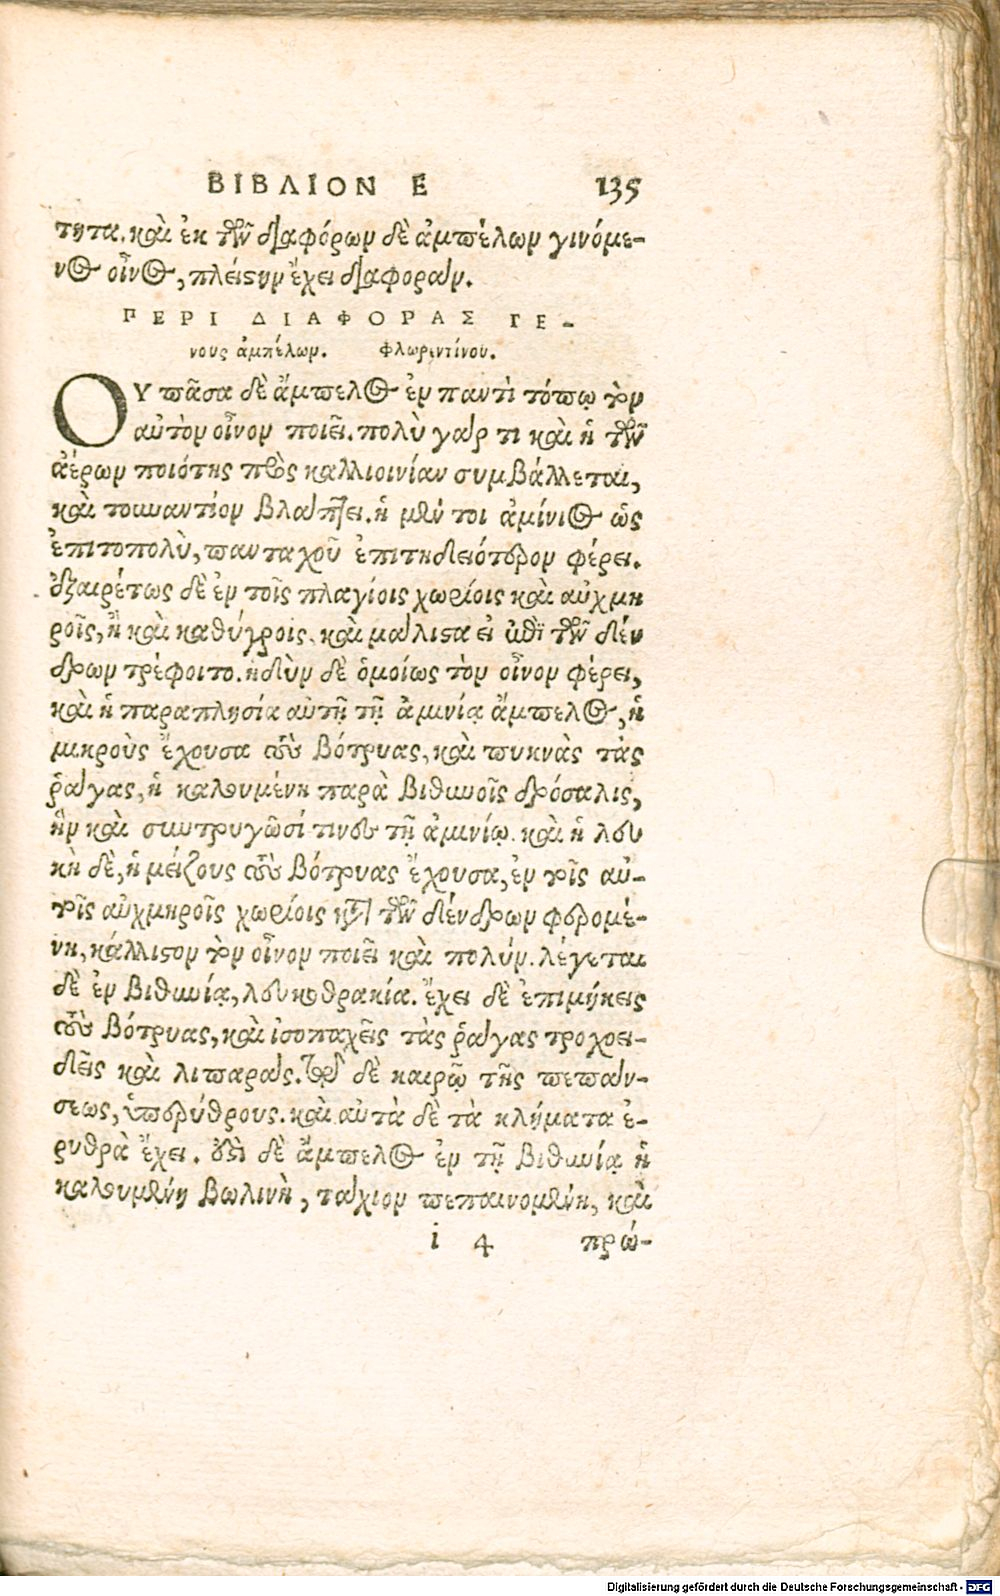 ΒΙΒΛΙΟΝ Ε 135
τητα. καὶ ἐκ τῶν διαφόρων δὲ ἀμπέλων γινόμε-
νος οἶνος, πλείστην ἔχει διαφοράν.
ΠΕΡΙ ΔΙΑΦΟΡΑΣ ΓΕ-
νους ἀμπέλων. Φλωρεντίνου.
ΟΥ πᾶσα δὲ ἄμπελος ἐν παντὶ τόπῳ τὸν
αὐτὸν οἶνον ποιεῖ. πολὺ γάρ τι καὶ ἡ τῶν
ἀέρων ποιότης πρὸς καλλιοινίαν συμβάλλεται,
καὶ τοὐναντίον βλάπτει. ἡ μέν τοι ἀμίνιος ὡς
ἐπιτοπολὺ, πανταχοῦ ἐπιτηδειότερον φέρει.
ἐξαιρέτως δὲ ἐν τοῖς πλαγίοις χωρίοις καὶ αὐχμη
ροῖς, ἢ καὶ καθύγροις. καὶ μάλιστα εἰ ἐπὶ τῶν δέν
δρων τρέφοιτο. ἡδὺν δὲ ὁμοίως τὸν οἶνον φέρει,
καὶ ἡ παραπλησία αὐτῇ τῇ ἀμινίᾳ ἄμπελος, ἡ
μικροὺς ἔχουσα τοὺς βότρυας, καὶ πυκνὰς τὰς
ῥάγας, ἡ καλουμένη παρὰ Βιθυνοῖς δρόσαλις,
ἣν καὶ συντρυγῶσί τινες τῇ ἀμινίῳ. καὶ ἡ λευ
κὴ δὲ, ἡ μείζους τοὺς βότρυας ἔχουσα, ἐν τοῖς αὐ-
τοῖς αὐχμηροῖς χωρίοις κατὰ τῶν δένδρων φερομέ-
νη, κάλλιστον τὸν οἶνον ποιεῖ καὶ πολύν. λέγεται
δὲ ἐν Βιθυνίᾳ, λευκοθρακία. ἔχει δὲ ἐπιμήκεις
τοὺς βότρυας, καὶ ἰσοπαχεῖς τὰς ῥάγας τροχοει-
δεῖς καὶ λιπαράς. τῷ δὲ καιρῷ τῆς πεπάν-
σεως, ὑπερύθρους. καὶ αὐτὰ δὲ τὰ κλήματα ἐ-
ρυθρὰ ἔχει. ἔστι δὲ ἄμπελος ἐν τῇ Βιθυνίᾳ ἡ
καλουμένη βωλινὴ, τάχιον πεπαινομένη, καὶ
i 4 πρώ-
Digitalisierung gefördert durch die Deutsche Forschungsgemeinschaft - DFG